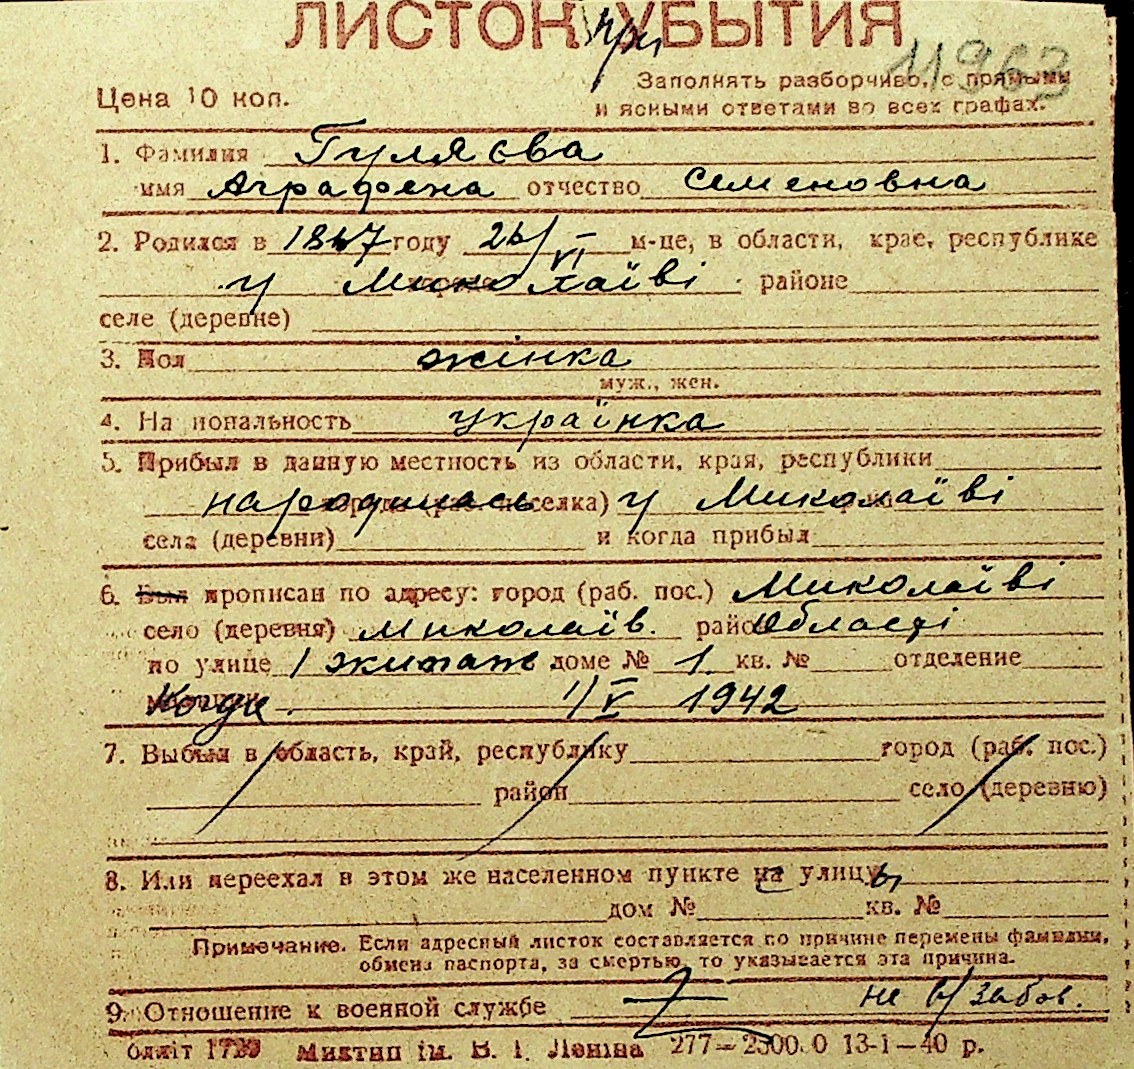 ЛИСТОК УБЫТИЯ
при
11963
Заполнять разборчиво, с прямыми
Цена 10 коп.
и ясными ответами во всех графах.
1. Фамилия Гуляєва
имя Аграфена отчество Семеновна
2. Родился в году м-це, в области, крае, республике
у Миколаїві районе
селе (деревне)
3. Пол жінка
муж., жен.
4. Национальность українка
5. Прибыл в данную местность из области, края, республики
народилась у Миколаїві
села (деревни) и когда прибыл
6. Был прописан по адресу: город (раб. пос.) Миколаїві
село (деревня) Миколаїв. Області
по улице доме № 1 кв. № отделение
Когда. 1/V 1942
7. Выбыл в область, край, республику город (раб. пос.)
район село (деревню)
8. Или переехал в этом же населенном пункте улицу
дом № кв. №
Примечание. Если адресный листок составляется по причине перемены фамилии,
обмена паспорта, за смертью, то указывается эта причина.
9. Отношение к военной службе не в/забов.
Миктип ім. В. І. Леніна 277—2500.0 13-1—40 р.